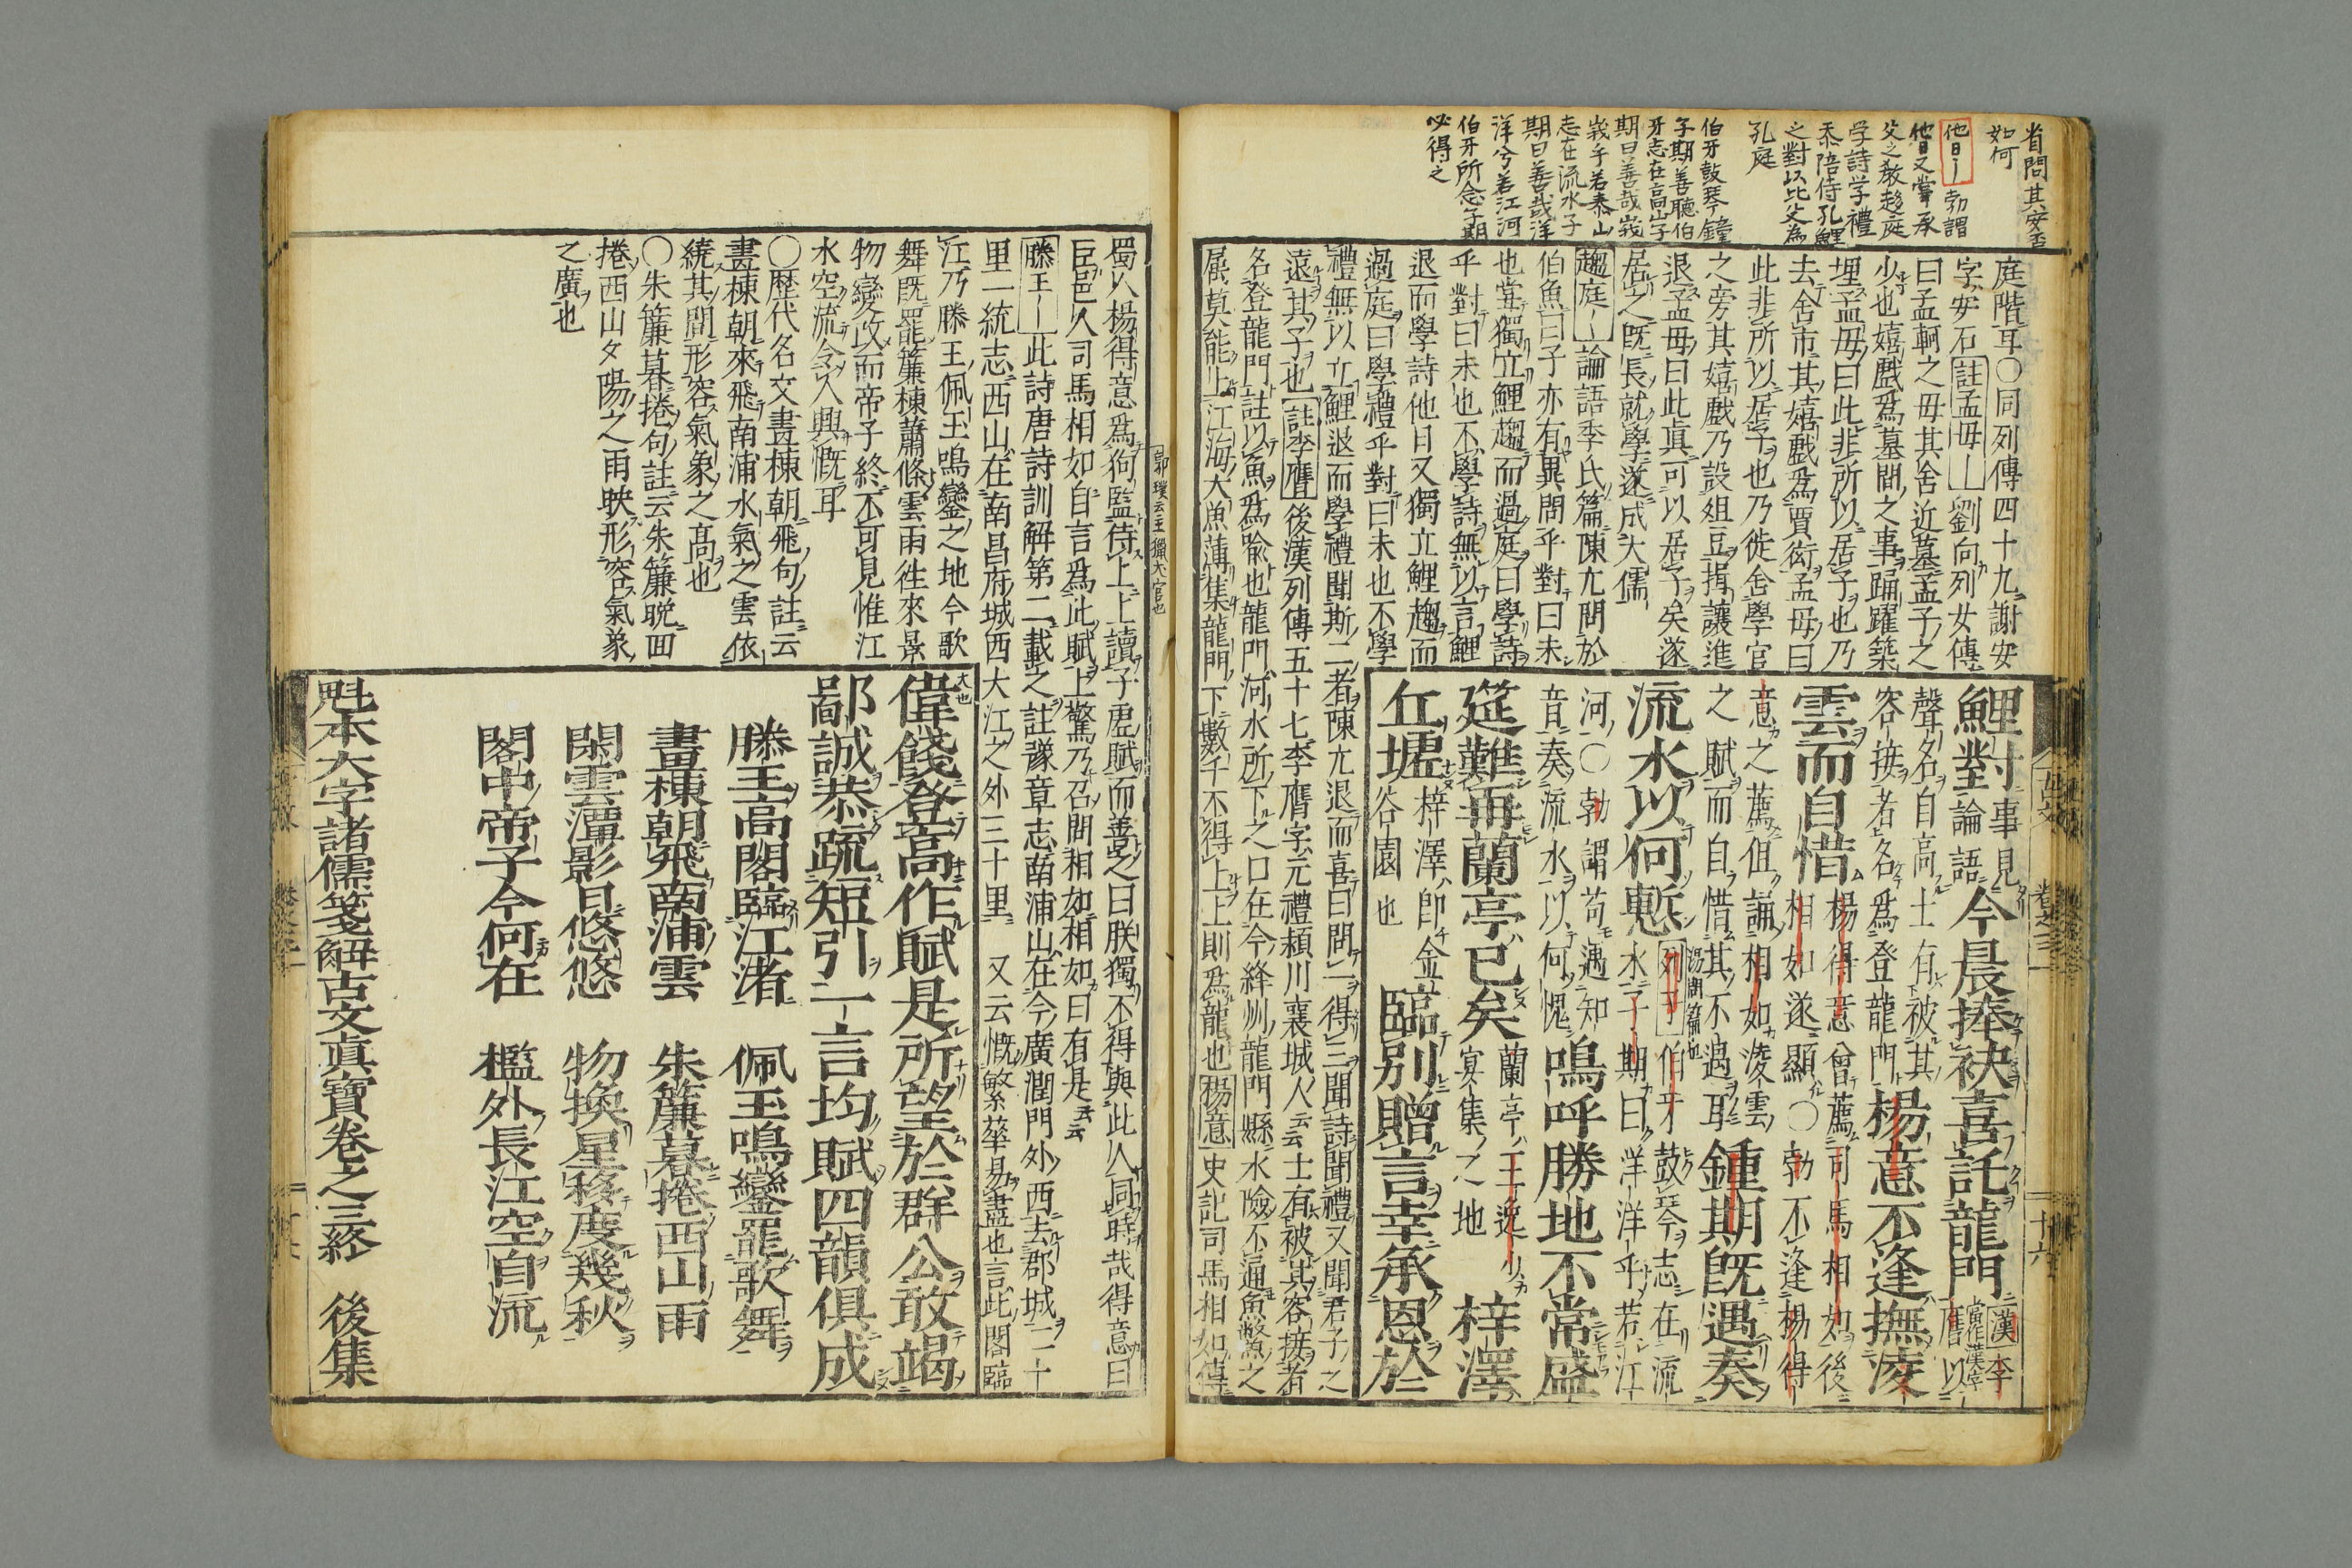 省問其安否
如何
他日｜勃謂
他日又嘗承
父之教趨庭
学詩学禮
忝陪侍孔鯉
之對以比父為
孔庭
伯牙鼓琴鐘
子期善聽伯
牙志在高山子
期曰善哉峩
峩乎若泰山
志在流水子
期曰善哉洋
洋兮若江河
伯牙所念子期
必得之
庭階耳○同列傳四十九謝安
字安石註孟母｜劉向列女傳
曰孟軻之母其舍近墓孟子之
少也嬉戲爲墓間之事踊躍築
埋孟母曰此非所以居子也乃
去舍市其嬉戲爲賈衒孟母曰
此非所以居子也乃徙舍學官
之旁其嬉戲乃設俎豆揖讓進
退孟母曰此眞可以居子矣遂
居之既長就學遂成大儒
趨庭｜論語季氏篇陳亢問於
伯魚曰子亦有異聞乎對曰未
也嘗獨立鯉趨而過庭曰學詩
乎對曰未也不學詩無以言鯉
退而學詩他日又獨立鯉趨而
過庭曰學禮乎對曰未也不學
禮無以立鯉退而學禮聞斯二者陳亢退而喜曰問一得三聞詩聞禮又聞君子之
遠其子也註李膺後漢列傳五十七李膺字元禮頴川襄城人云云士有被其容接者
名登龍門註以魚爲喩也龍門河水所下之口在今絳州龍門縣水險不通魚鼈之
屬莫能上江海大魚薄集龍門下數千不得上上則爲龍也楊意史記司馬相如傳
鯉對事見論語今晨捧袂喜託龍門漢李膺以
當作漢李
聲名自高士有被其容接者名爲登龍門楊意不逢撫凌
雲而自惜楊得意曾薦司馬相如後相如遂顯○勃不逢楊得
意之薦但誦相如凌雲之賦而自惜其不遇耳鍾期既遇奏
流水以何慙列子伯牙鼓琴志在流水子期曰洋洋乎若江
湯問篇也
河○勃謂苟遇知音奏流水以何愧嗚呼勝地不常盛
筵難再蘭亭已矣蘭亭王逸少宴集之地梓澤
丘墟梓澤即金谷園也臨別贈言幸承恩於
蜀人楊得意爲狗監侍上上讀子虛賦而善之曰朕獨不得與此人同時哉得意曰
郭璞云主獵犬官也
臣邑人司馬相如自言爲此賦上驚乃召問相如相如曰有是云云
滕王｜此詩唐詩訓解第二載之註豫章志南浦山在今廣潤門外西去郡城二十
里一統志西山在南昌府城西大江之外三十里又云慨繁華易盡也言此閣臨
江乃滕王佩玉鳴鑾之地今歌
舞既罷簾棟蕭條雲雨徃來景
物變改而帝子終不可見惟江
水空流令人興慨耳
○歷代名文畫棟朝飛句註云
畫棟朝來飛南浦水氣之雲依
繞其間形容氣象之高也
○朱簾暮捲句註云朱簾晩面
捲西山夕陽之雨映形容氣象
之廣也
偉餞登高作賦是所望於群公敢竭
大也
鄙誠恭疏短引一言均賦四韻俱成
滕王高閣臨江渚　佩玉鳴鑾罷歌舞
畫棟朝飛南浦雲　朱簾暮捲西山雨
閑雲潭影日悠悠　物換星移度幾秋
閣中帝子今何在　檻外長江空自流
魁本大字諸儒箋解古文眞寶卷之三終　後集